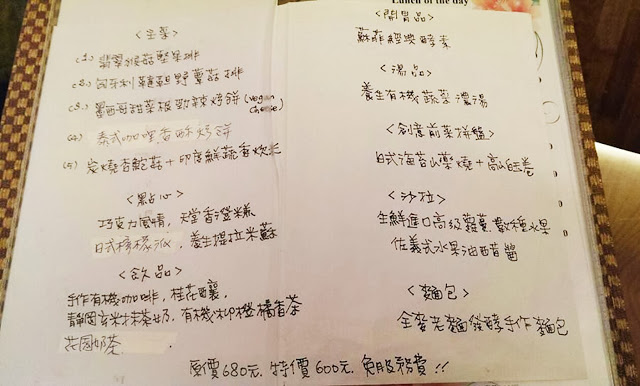 <主餐>
(1) 翡翠猴菇堅果排
(2) 匈牙利龍鬚野蕈菇排
(3) 墨西哥甜菜根勁辣烤餅 (vegan cheese)
(4) 泰式咖哩香酥烤餅
(5) 炭燒杏鮑菇+印度鮮蔬香炊米
<點心>
巧克力風情, 天堂香澄米糕
日式核桃派, 養生提拉米蘇
<飲品>
手作有機咖啡, 桂花釀,
靜岡玄米抹茶奶, 有機柳橙橘香茶
花園奶茶
Lunch of the day
<開胃品>
蘇菲經典酵素
<湯品>
養生有機蔬菜濃湯
<創意前菜拼盤>
日式海苔山藥燒+高山白玉卷
<沙拉>
生鮮進口高級蘿蔓.數種水果
佐義式水果油醋醬
<麵包>
全麥老麵發酵手作麵包
原價680元. 特價600元. 免服務費!!